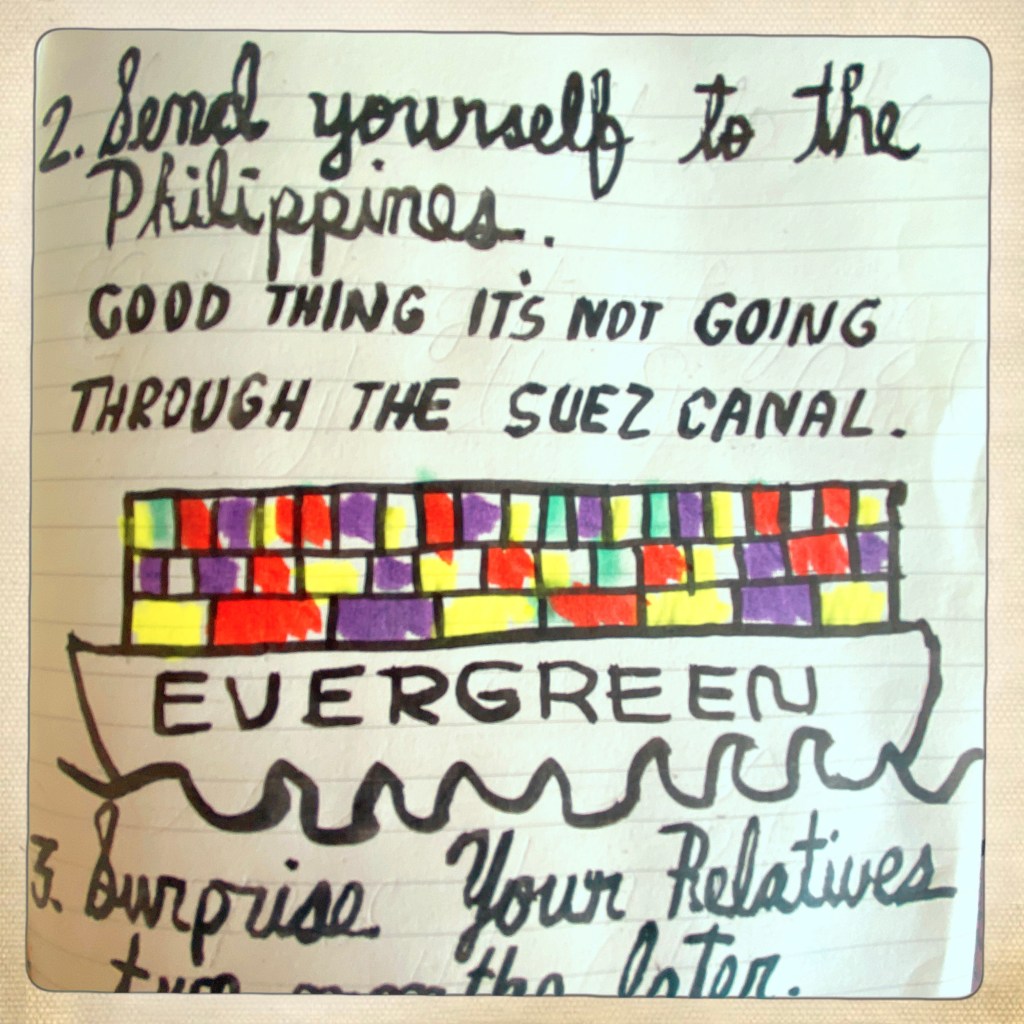 2. Send yourself to the
Philippines.
GOOD THING IT'S NOT GOING
THROUGH THE SUEZ CANAL.
EVERGREEN
3. Surprise Your Relatives
two months later.